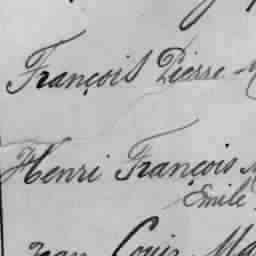 François Pierre
Henri François
Emile
Jean Louis Ma